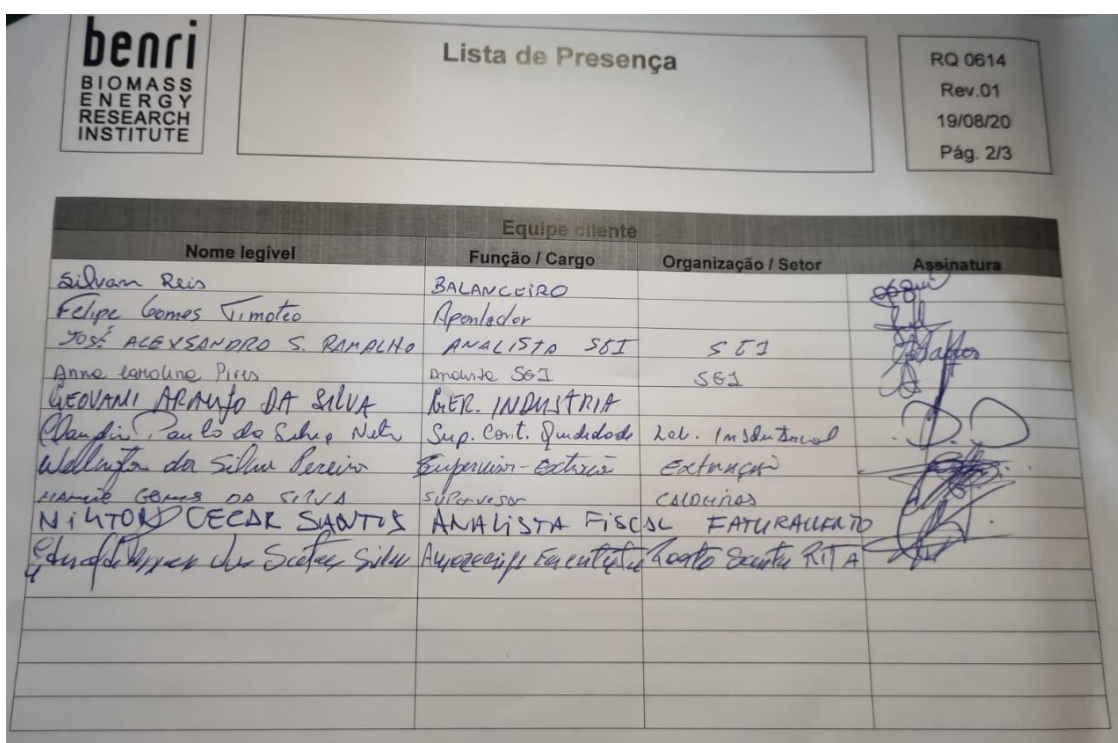 benri
BIOMASS
ENERGY
RESEARCH
INSTITUTE
Lista de Presença
RQ 0614
Rev.01
19/08/20
Pág. 2/3
Equipe cliente
Nome legível Função / Cargo Organização / Setor Assinatura
Silvan Reis BALANCEIRO
Felipe Gomes Timoteo Apontador
JOSÉ ALEXSANDRO S. RAMALHO ANALISTA SGI SGI
Anna Carolina Pires Analista SGI SGI
GEOVANI ARAUJO DA SILVA GER. INDUSTRIA
Claudio Paulo da Silva Neto Sup. Cont. Qualidade Lab. Industrial
Wellington da Silva Pereira Supervisor - Extração Extração
GOMES DA SILVA SUPERVISOR CALDEIRAS
NILTON CECAR SANTOS ANALISTA FISCAL FATURAMENTO
Santos Silva Santa RITA